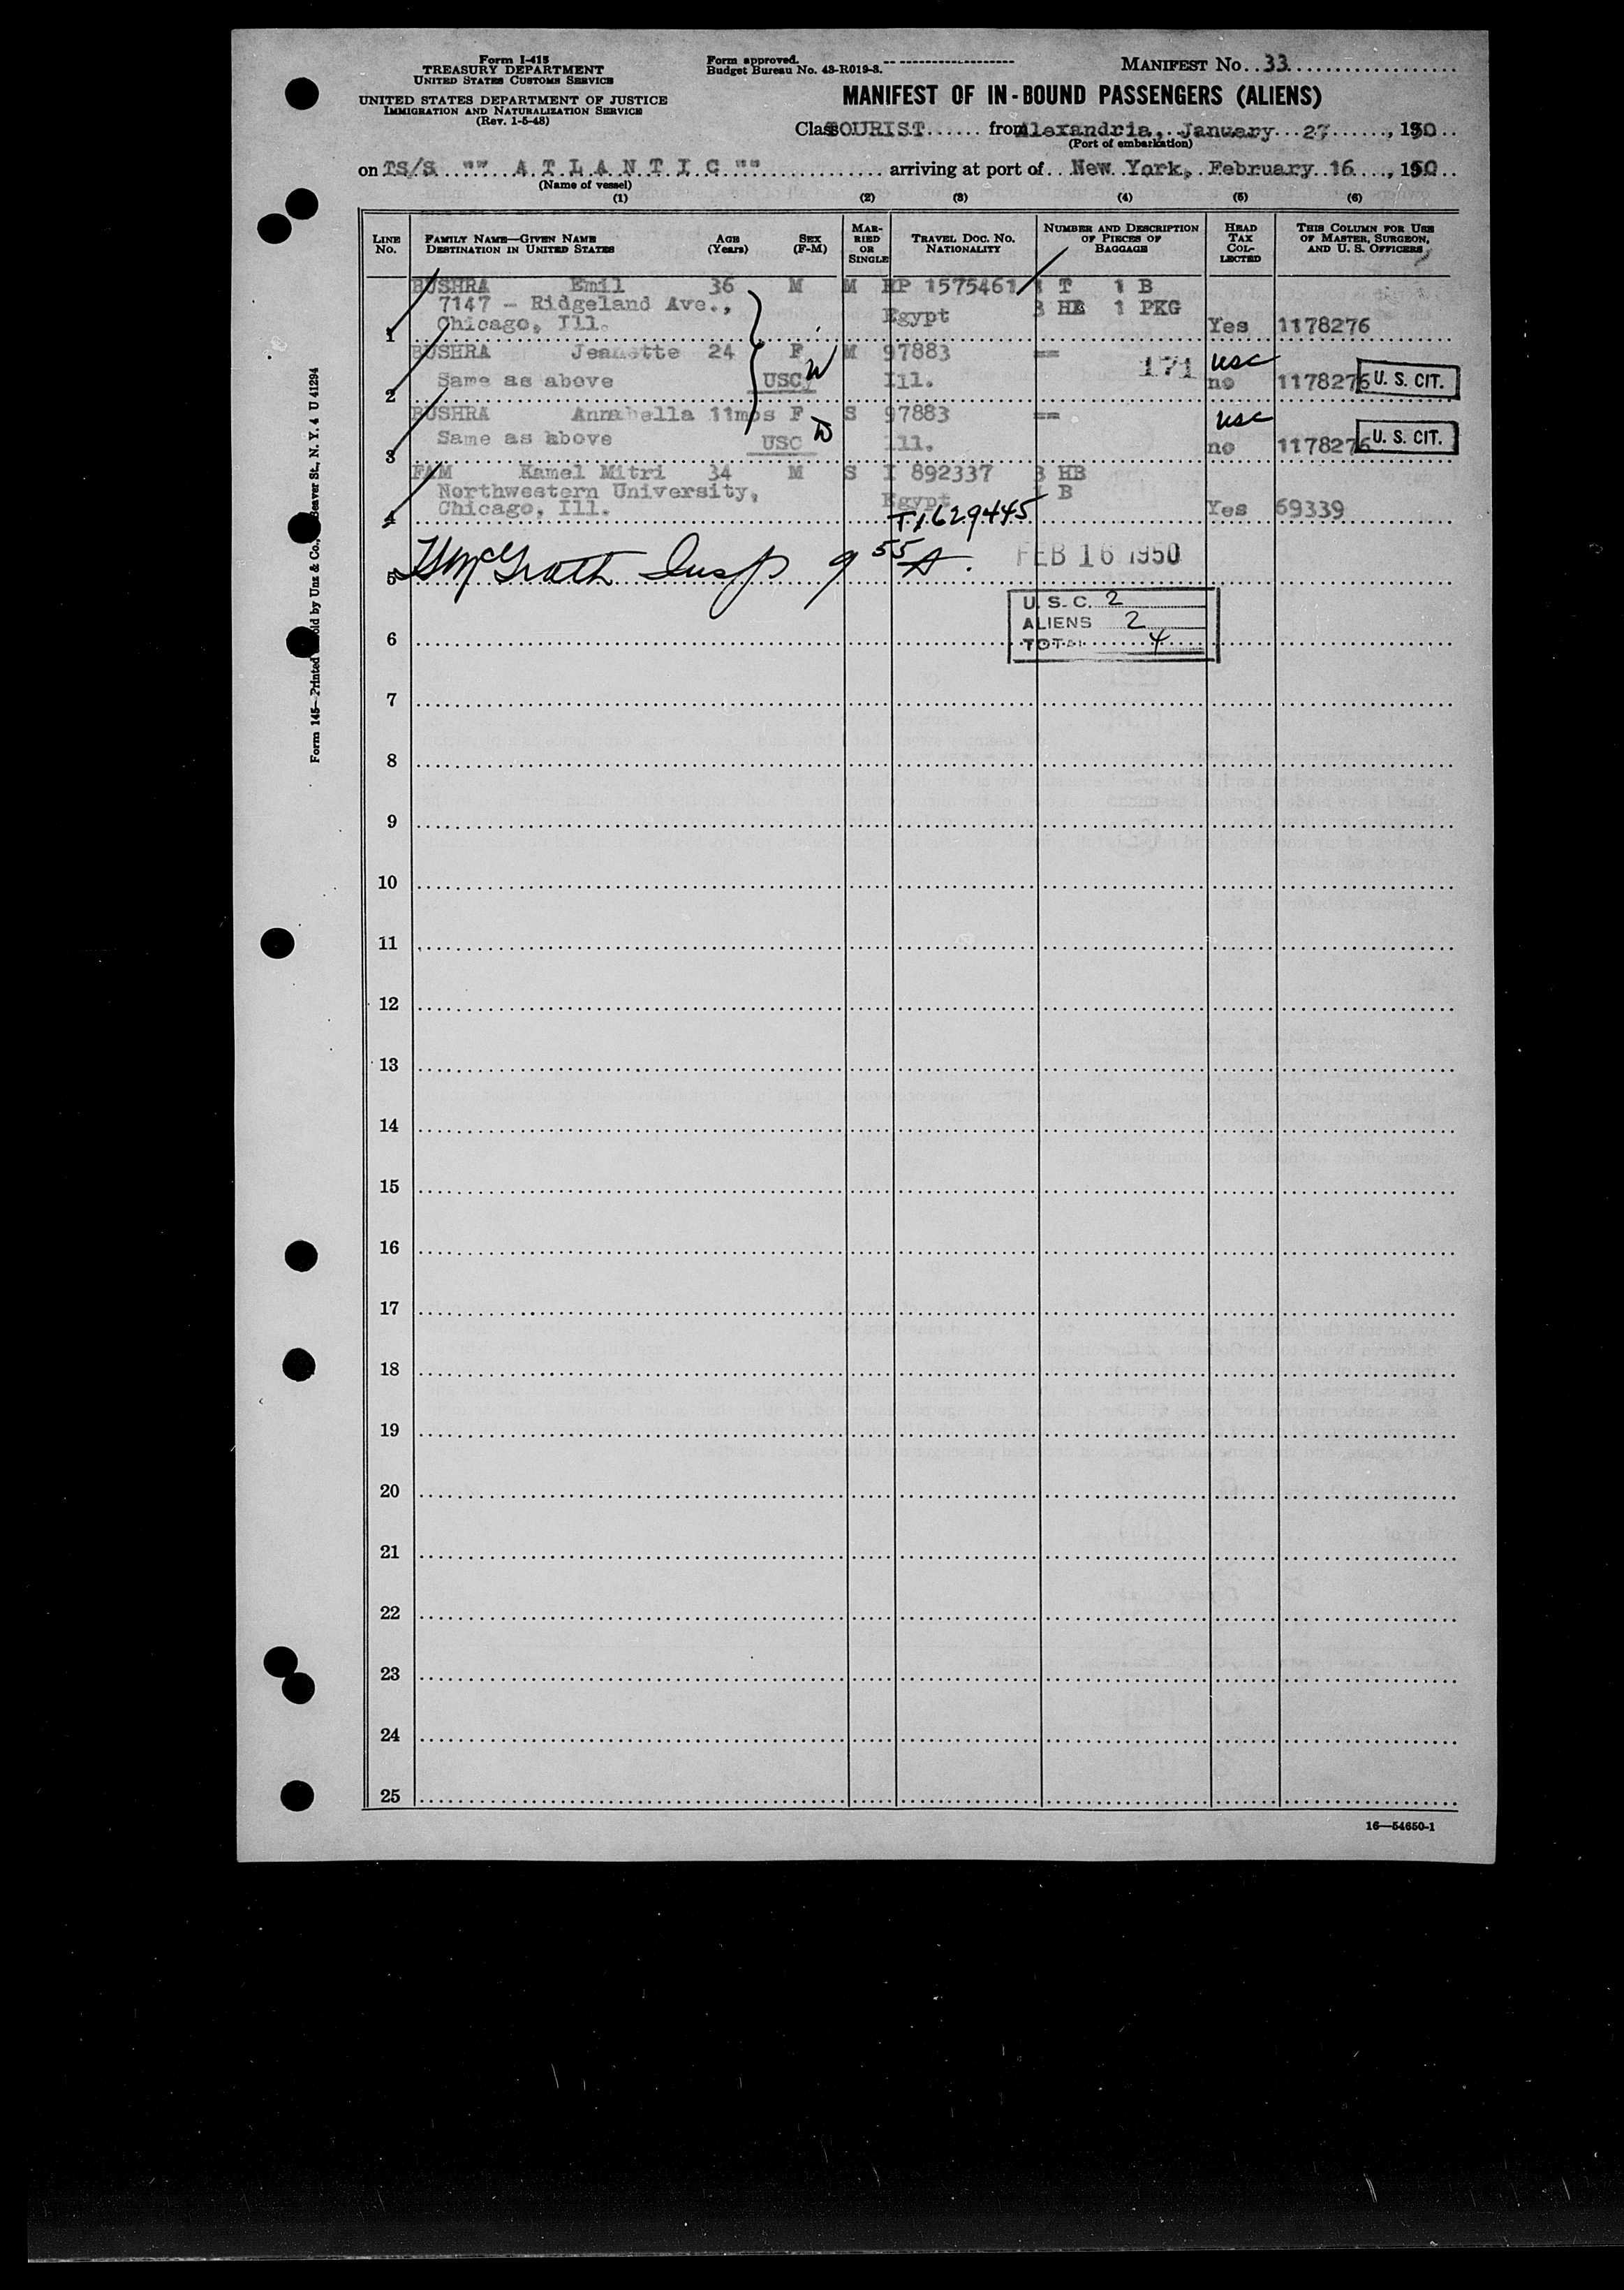 Form I-415
TREASURY DEPARTMENT
UNITED STATES CUSTOMS SERVICE
UNITED STATES DEPARTMENT OF JUSTICE
IMMIGRATION AND NATURALIZATION SERVICE
(Rev. 1-5-48)
Form approved.
Budget Bureau No. 43-R019-3.
MANIFEST No. 33
MANIFEST OF IN-BOUND PASSENGERS (ALIENS)
Class TOURIST from Alexandria, January 27, 1950
(Port of embarkation)
on TS/S "" A T L A N T I C "" arriving at port of New York, February 16, 1950
(Name of vessel)
(1) (2) (3) (4) (5) (6)
LINE No. FAMILY NAME—GIVEN NAME DESTINATION IN UNITED STATES AGE (Years) SEX (F-M) MARRIED OR SINGLE TRAVEL DOC. NO. NATIONALITY NUMBER AND DESCRIPTION OF PIECES OF BAGGAGE HEAD TAX COLLECTED THIS COLUMN FOR USE OF MASTER, SURGEON, AND U. S. OFFICERS
BUSHRA Emil 36 M M RP 1575461 1 T 1 B
7147 - Ridgeland Ave., Egypt 3 HB 1 PKG
1 Chicago, Ill. Yes 1178276
BUSHRA Jeanette 24 F W M 97883 == 171 usc
2 Same as above USC Ill. no 1178276 U. S. CIT.
BUSHRA Annabella 11mos F S 97883 == usc
3 Same as above USC W Ill. no 1178276 U. S. CIT.
FAM Kamel Mitri 34 M S I 892337 3 HB
Northwestern University, Egypt 1 B
4 Chicago, Ill. T1629445 Yes 69339
5 McGrath Insp 9 55 A. FEB 16 1950
U. S. C. 2
ALIENS 2
6 TOTAL 4
7
8
9
10
11
12
13
14
15
16
17
18
19
20
21
22
23
24
25
16—54650-1
Form 145—Printed
old by Unz & Co.,
Beaver St., N. Y. 4 U 41294